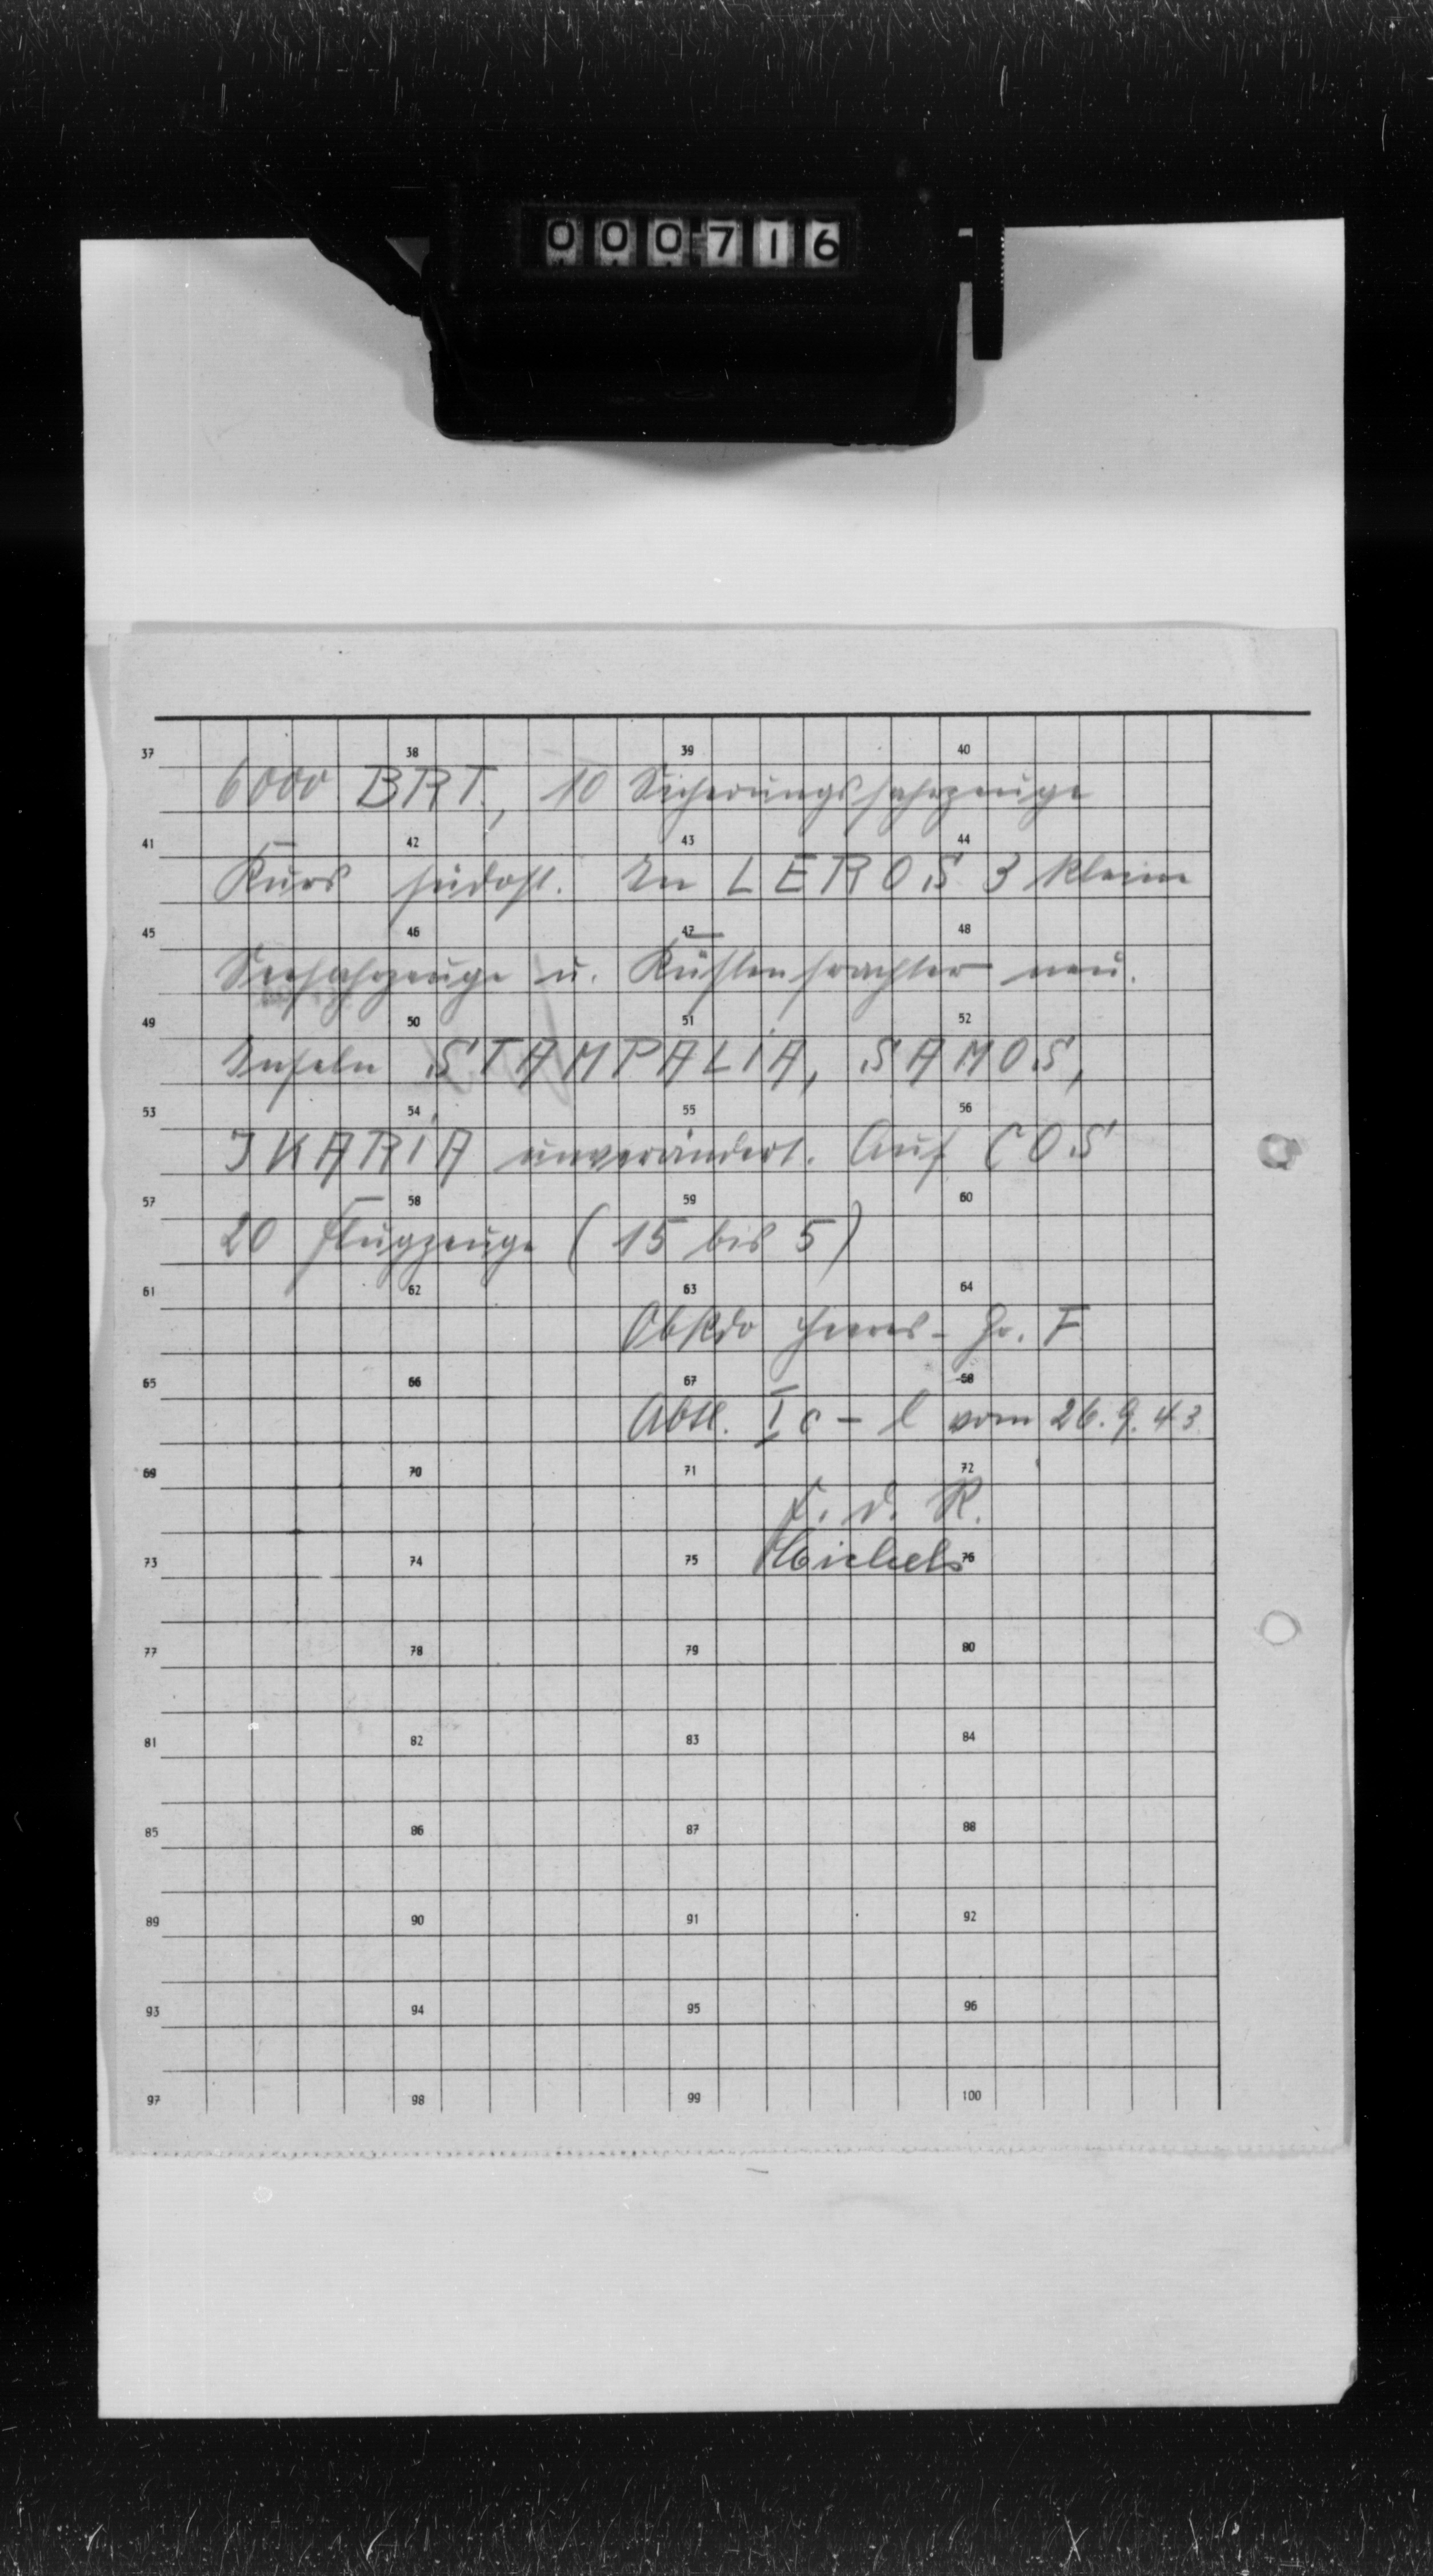 000716
37 38 39 40
6000 BRT., 10 Sicherungsfahrzeuge
41 42 43 44
Kurs südost. In LEROS 3 kleine
45 46 47 48
Seefahrzeuge u. Küstenfrachter neu.
49 50 51 52
Inseln STAMPALIA, SAMOS,
53 54 55 56
IKARIA unverändert. Auf COS
57 58 59 60
20 Flugzeuge (15 bis 5)
61 62 63 64
ObKdo Heeres-Gr. F
65 66 67 68
Abtl. Ic - l vom 26.9.43
69 70 71 72
F. d. R.
73 74 75 76
Michels
77 78 79 80
81 82 83 84
85 86 87 88
89 90 91 92
93 94 95 96
97 98 99 100